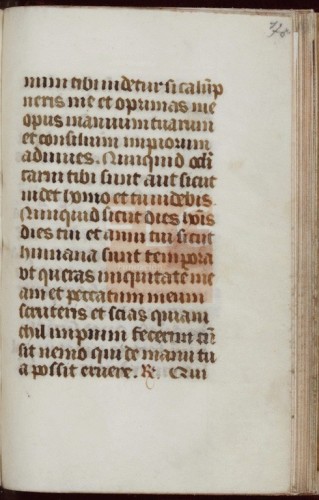 num tibi videtur si calūp
neris me et oprimas me
opus manuum tuarum
et consilium impiorum
adiuves. Nunquid oculi
carni tibi sunt aut sicut
videt homo et tu videbis.
Nunquid sicut dies hoīs
dies tui et anni tui sicut
humana sunt tempora
ut queras iniquitatē me
am et peccatum meum
scruteris et scias quiani
chil impium fecerim cū
sit nemo qui de manu tu
a possit eruere. R. Qui